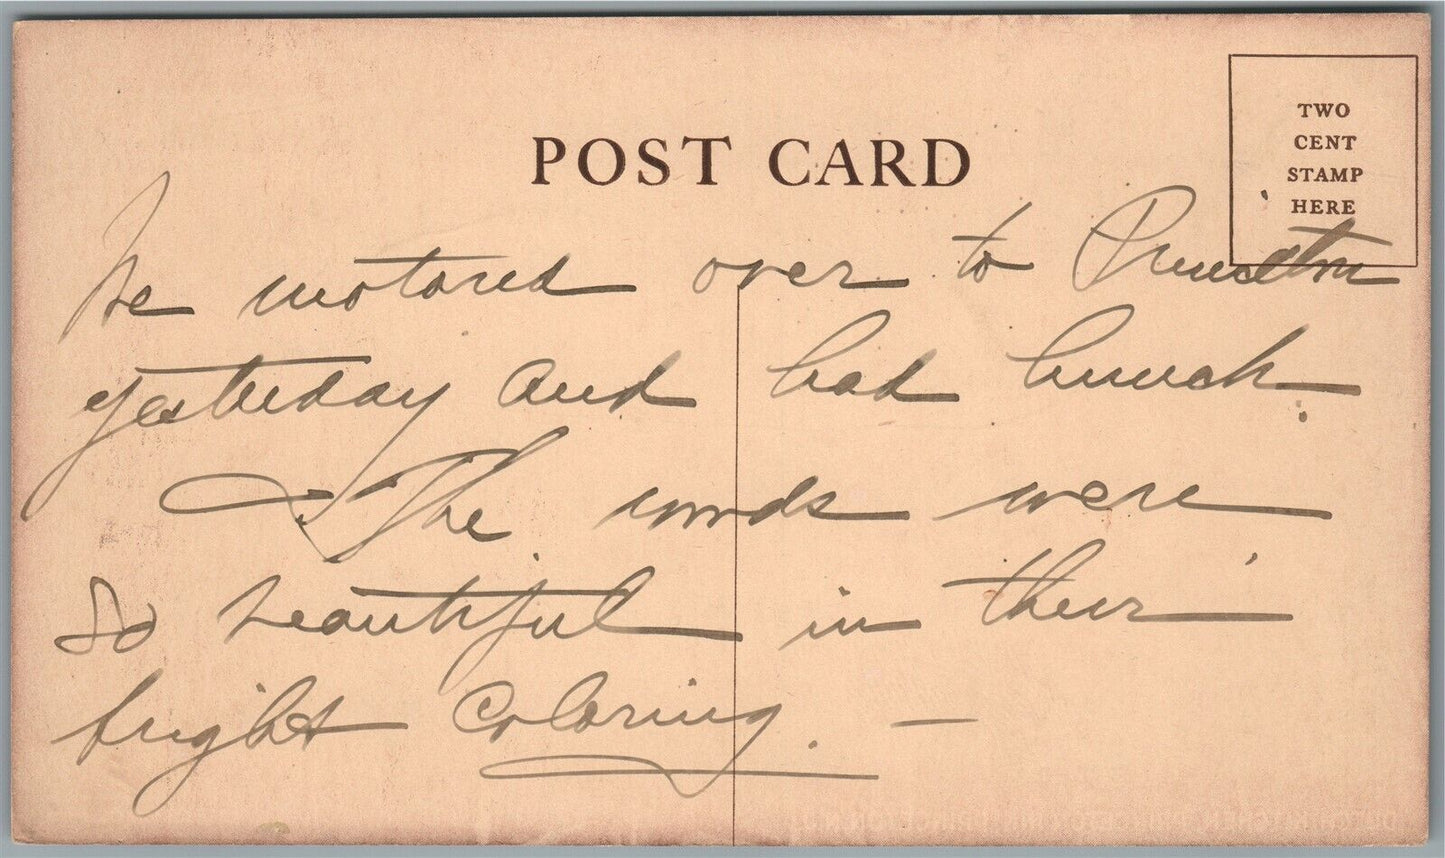 POST CARD
TWO
CENT
STAMP
HERE
We motored over to Princeton
yesterday and had lunch.
The woods were
so beautiful in their
bright coloring. —